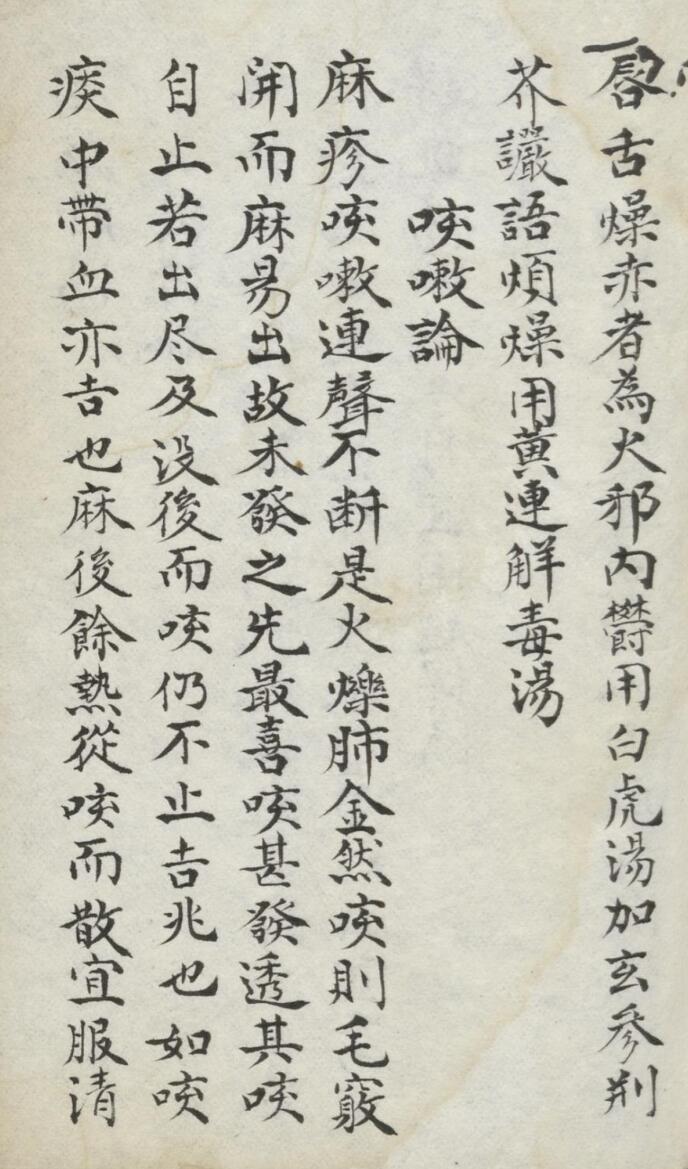 唇舌燥赤者為火邪内欝用白虎湯加玄参荆
芥讝語煩燥用黄連解毒湯
咳嗽論
麻疹咳嗽連聲不断是火爍肺金然咳則毛竅
開而麻易出故未發之先最喜咳甚發透其咳
自止若出尽及没後而咳仍不止吉兆也如咳
痰中帶血亦吉也麻後餘熱從咳而散宜服清